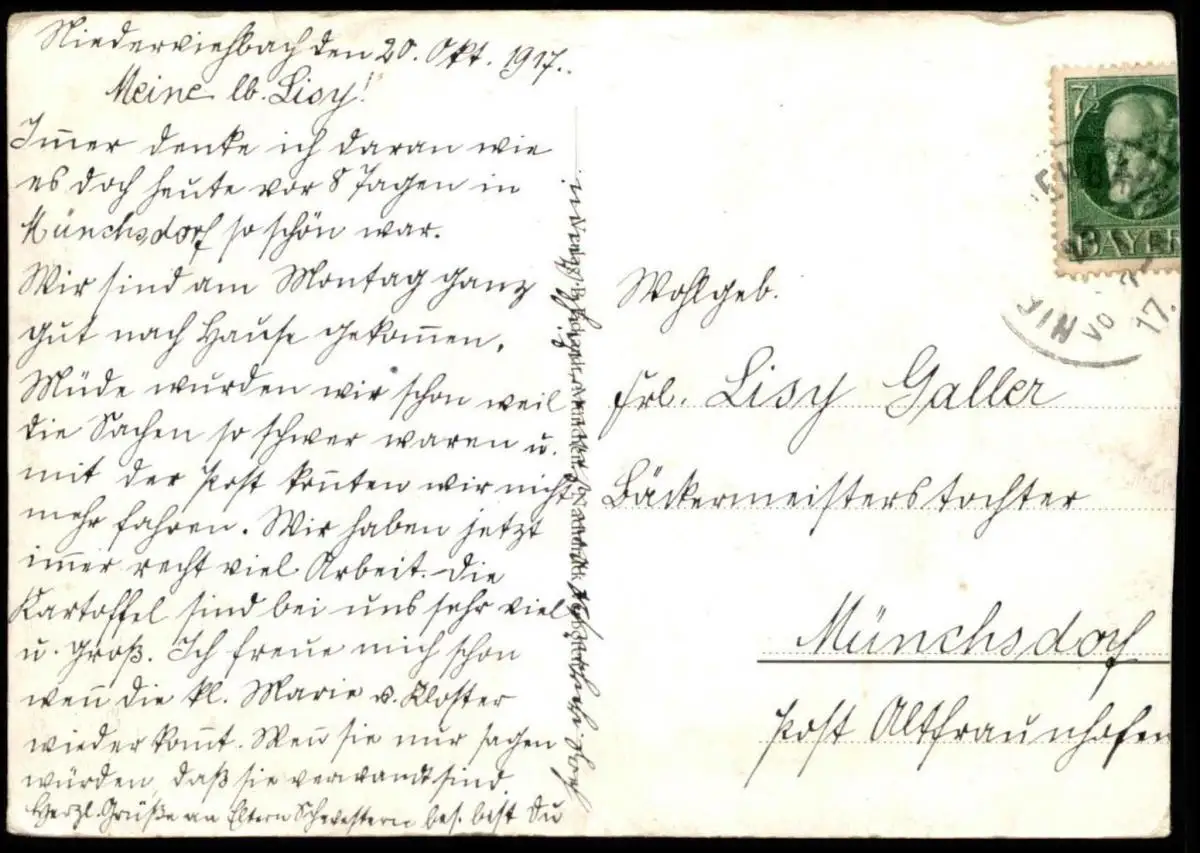 Niederviehbach den 20. Okt. 1917.
Meine lb. Lisy!
Im̄er denke ich daran wie
es doch heute vor 8 Tagen in
Münchsdorf so schön war.
Wir sind am Montag ganz
gut nach Hause gekom̄en.
Müde wurden wir schon weil
die Sachen so schwer waren u.
mit der Post kon̄ten wir nicht
mehr fahren. Wir haben jetzt
im̄er recht viel Arbeit. Die
Kartoffel sind bei uns sehr viel
u. groß. Ich freue mich schon
wen̄ die kl. Marie v. Kloster
wieder kom̄t. Wen̄ sie nur sagen
würden, daß sie verwandt sind.
Herzl. Grüße an Eltern Schwestern bes. bist Du
Wohlgeb.
Frl. Lisy Galler
Bäckermeisterstochter
Münchsdorf
Post Altfraunhofen
7½
BAYERN
17.